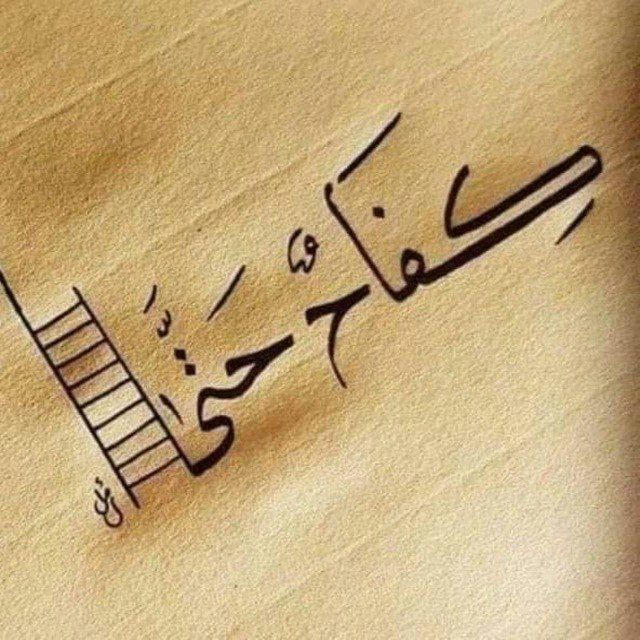 كِفَاحٌ حَتَّى